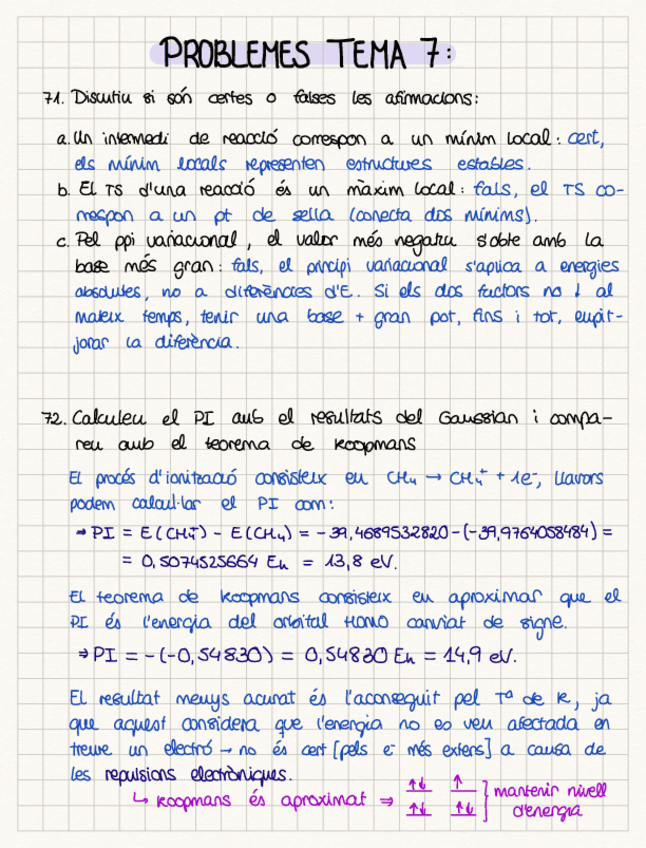 PROBLEMES TEMA 7:
71. Discutiu si són certes o falses les afirmacions:
a. Un intermedi de reacció correspon a un mínim local: cert,
els mínim locals representen estructures estables.
b. El TS d'una reacció és un màxim local: fals, el TS co-
rrespon a un pt de sella (conecta dos mínims).
c. Pel ppi variacional, el valor més negatiu s'obté amb la
base més gran: fals, el principi variacional s'aplica a energies
absolutes, no a diferències d'E. Si els dos factors no ↓ al
mateix temps, tenir una base + gran pot, fins i tot, empit-
jorar la diferència.
72. Calculeu el PI amb el resultats del Gaussian i compa-
reu amb el teorema de Koopmans
El procés d'ionització consisteix en CH₄ → CH₄⁺ + 1e⁻, llavors
podem calcul·lar el PI com:
⇒ PI = E(CH₄⁺) - E(CH₄) = -39,4689532820-(-39,9764058484) =
= 0,5074525664 Eh = 13,8 eV.
El teorema de Koopmans consisteix en aproximar que el
PI és l'energia del orbital HOMO canviat de signe.
⇒ PI = -(-0,54830) = 0,54830 Eh = 14,9 eV.
El resultat menys acurat és l'aconseguit pel Tª de K, ja
que aquest considera que l'energia no es veu afectada en
treure un electró → no és cert [pels e⁻ més extens] a causa de
les repulsions electròniques.
↳ Koopmans és aproximat ⇒ ↑↓ ↑ mantenir nivell
↑↓ ↑↓ d'energia